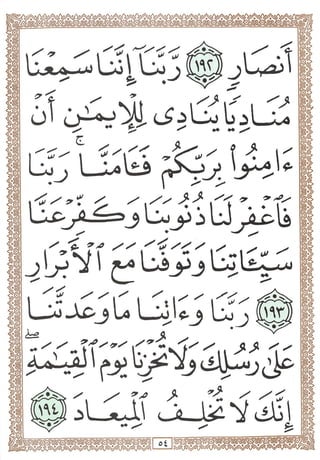 أَنصَارٍ ١٩٢ رَّبَّنَآ إِنَّنَا سَمِعْنَا
مُنَادِيًا يُنَادِى لِلْإِيمَـٰنِ أَنْ
ءَامِنُوا۟ بِرَبِّكُمْ فَـَٔامَنَّا ۚ رَبَّنَا
فَٱغْفِرْ لَنَا ذُنُوبَنَا وَكَفِّرْ عَنَّا
سَيِّـَٔاتِنَا وَتَوَفَّنَا مَعَ ٱلْأَبْرَارِ
١٩٣ رَبَّنَا وَءَاتِنَا مَا وَعَدتَّنَا
عَلَىٰ رُسُلِكَ وَلَا تُخْزِنَا يَوْمَ ٱلْقِيَـٰمَةِ ۖ
إِنَّكَ لَا تُخْلِفُ ٱلْمِيعَادَ ١٩٤
٥٤